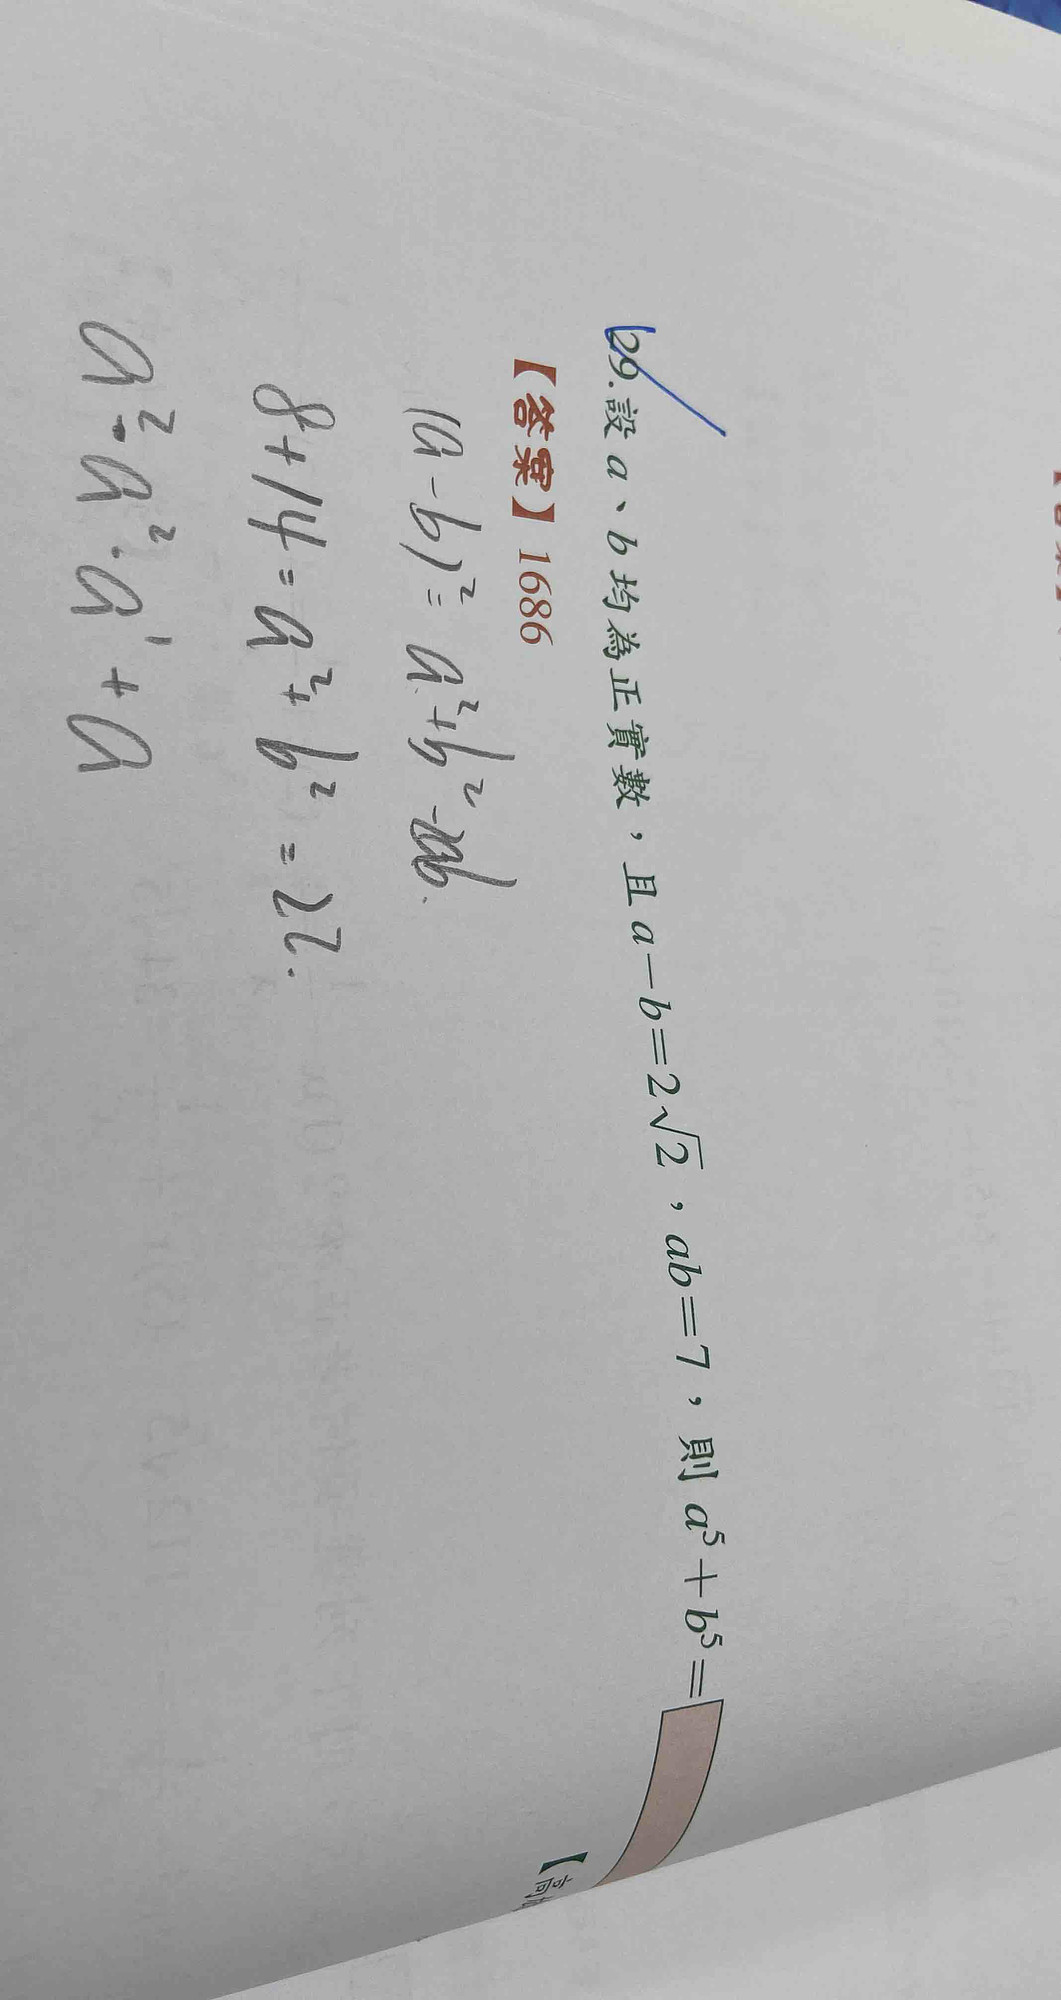 29.設 a、b 均為正實數，且 a－b＝2√2，ab＝7，則 a⁵＋b⁵＝
【答案】1686
(a-b)²= a²+b²-2ab.
8+14=a²+b²=22.
a²·a²·a¹+a